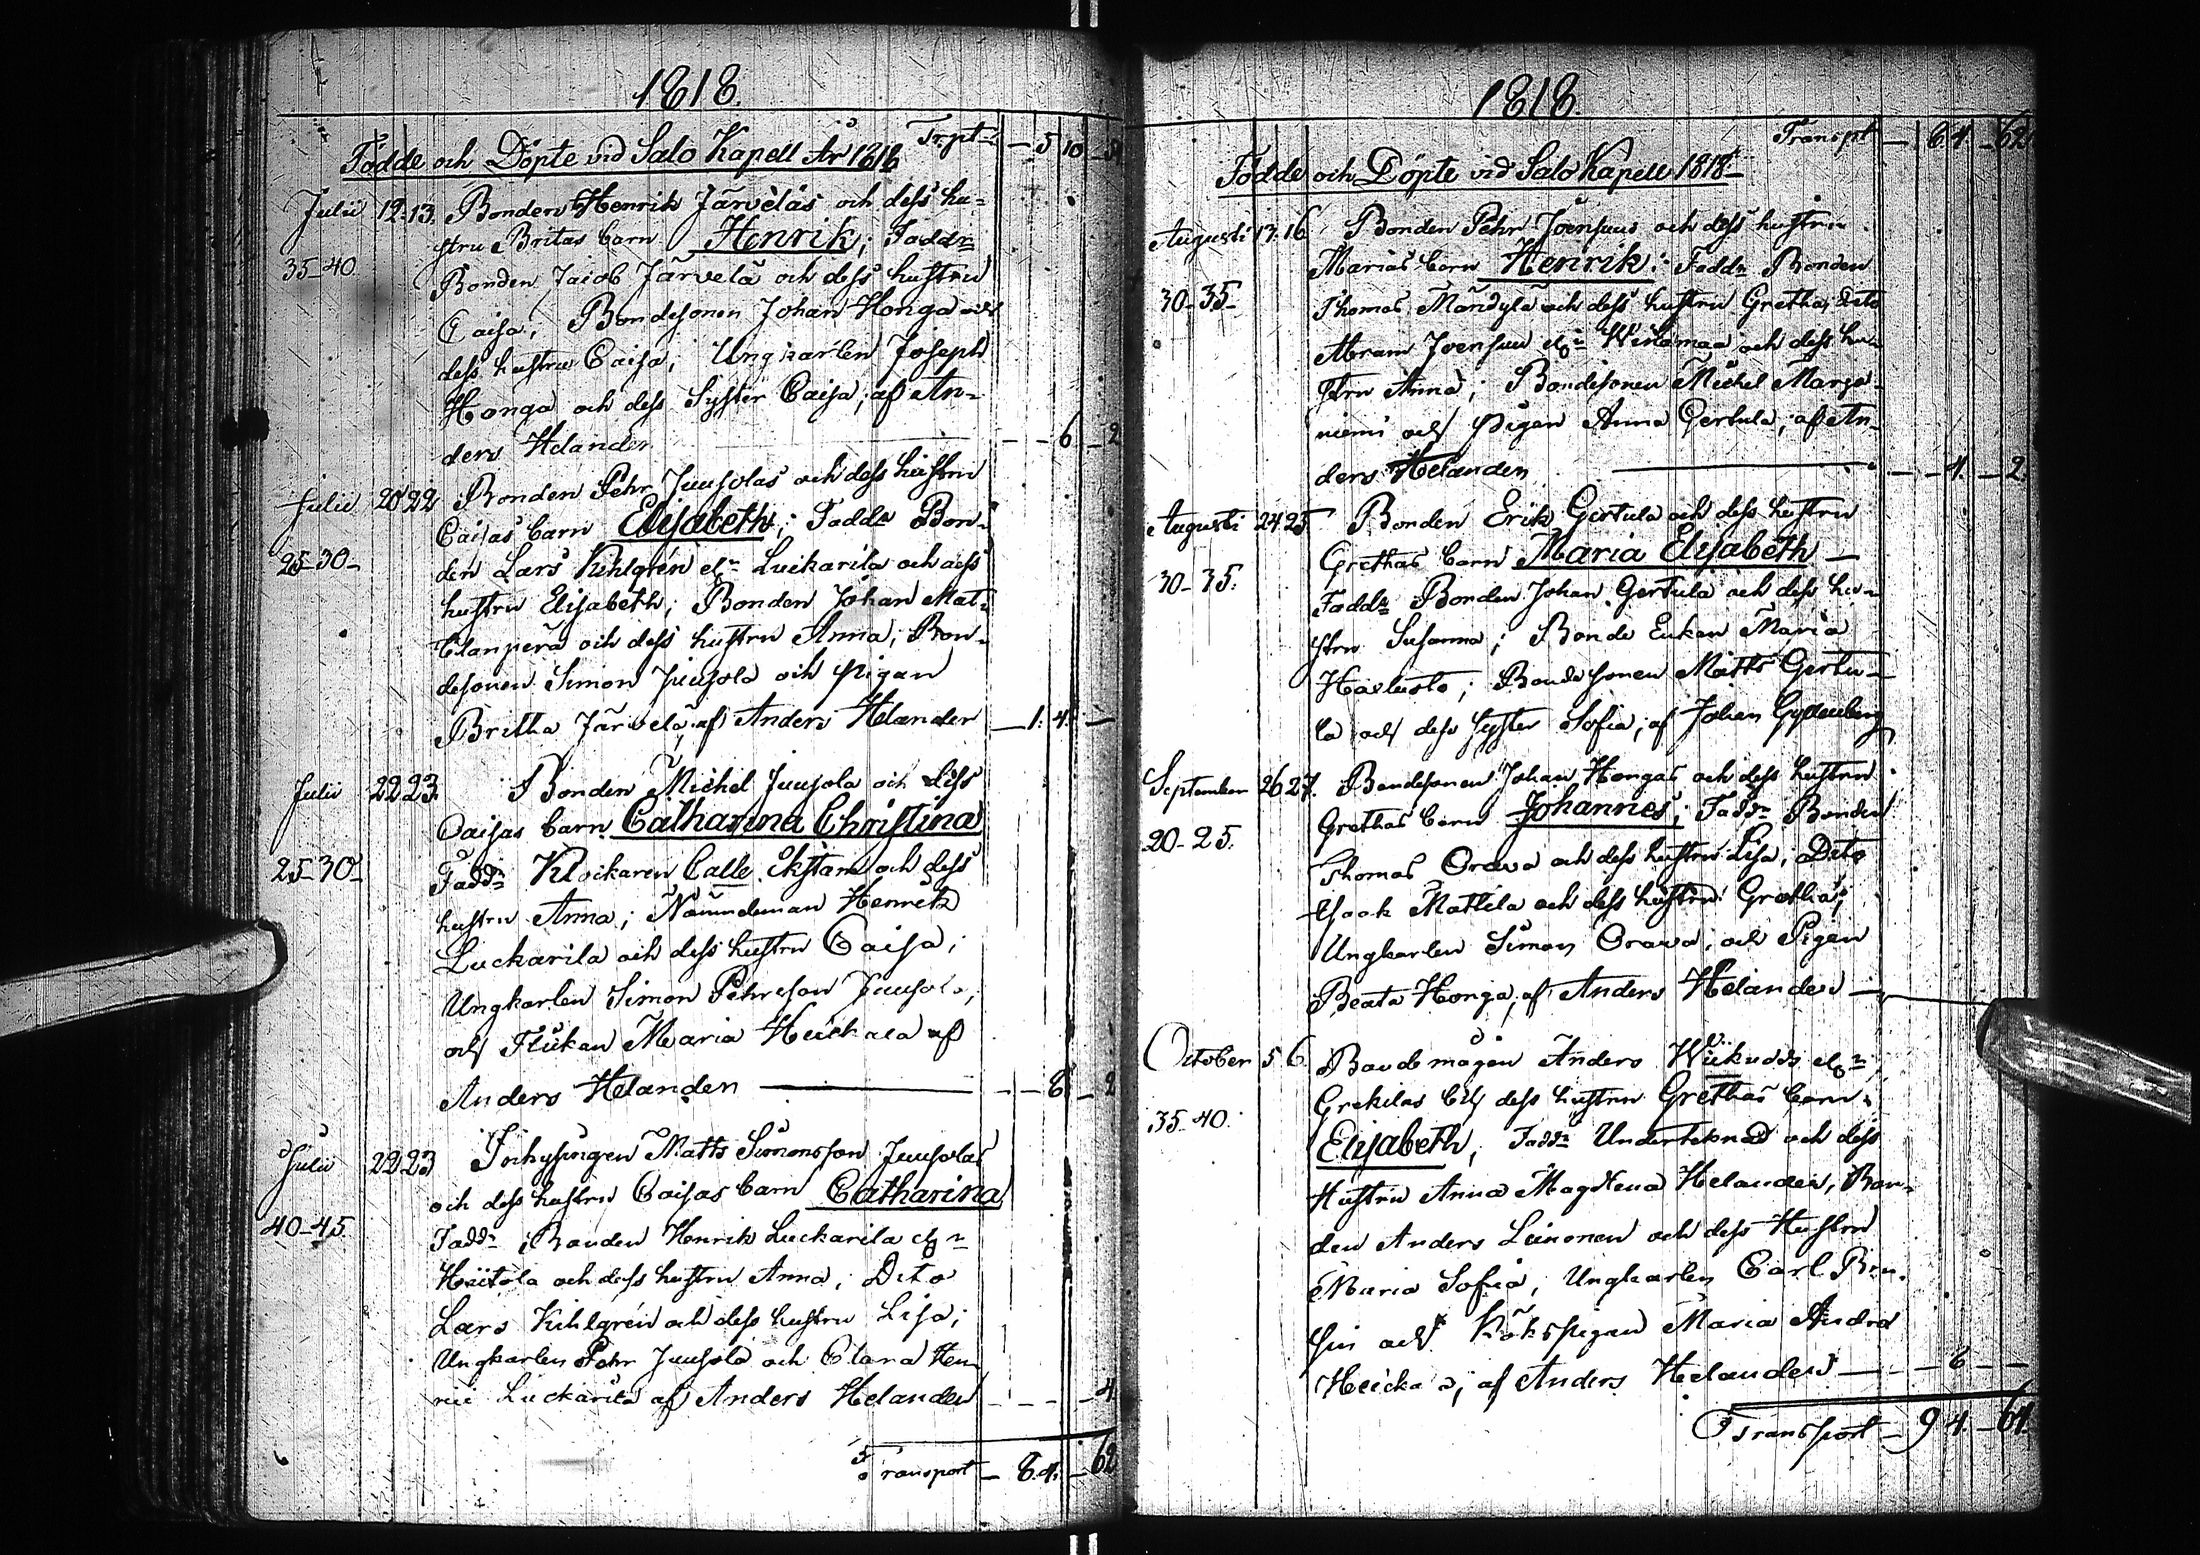 1818.
Trpt — 5 10
Födde och Döpte vid Salo Kapell År 1818
Julii 12.13. Bonden Henrik Järveläs och dess hu=
stru Britas barn Henrik; Faddr
35-40. Bonden Jacob Järvelä och dess hustru
Caisa; Bondesonen Johan Honga och
dess hustru Caisa; Ungkarlen Joseph
Honga och dess Syster Caisa; af An=
ders Helander — — 6 — 2
Julii 20 22 Bonden Pehr Juusolas och dess hustru
Caisas barn Elisabeth; Faddr Bon=
25-30- den Lars Kihlgrén elr Luckarila och dess
hustru Elisabeth; Bonden Johan Mat=
tlanperä och dess hustru Anna; Bon=
desonen Simon Juusola och pigan
Britha Järvelä, af Anders Helander — 1. 4. —
Julii 22 23. Bonden Michel Juusola och dess
Caisas barn Catharina Christina
25-30- Faddr Klockaren Calle Ekstam och dess
hustru Anna; Nämndeman Henrik
Luckarila och dess hustru Caisa;
Ungkarlen Simon Pehrsson Juusola,
och Flickan Maria Heickala af
Anders Helander — — 8 — 2
Julii 22 23 Inhysingen Matts Simonsson Juusolas
och dess hustru Caisas barn Catharina
40-45 Faddr Bonden Henrik Luckarila elr
Hiitola och dess hustru Anna; Dito
Lars Kihlgrén och dess hustru Lisa;
Ungkarlen Pehr Juusola och Clara Hen
rici Luckarila af Anders Helander — — — 4
Transport — 8. 4. — 62
1818.
Transpt — 8. 4 — 62.
Födde och Döpte vid Salo Kapell 1818-
Augusti 13. 16 Bonden Pehr Joensuus och dess hustru
Marias barn Henrik; Faddr Bonden
30-35- Thomas Mändylä och dess hustru Gretha, dito
Abram Joensuu elr Wirlamaa och dess hu=
stru Anna; Bondesonen Michel Marja=
niemi och Pigan Anna Gertula; af An=
ders Helander — — 4. — 2.
Augusti 24 25 Bonden Erik Gertula och dess hustru
Grethas barn Maria Elisabeth —
30-35. Faddr Bonden Johan Gertula och dess hu=
stru Susanna; Bonde Enkan Maria
Havusto; Bondesonen Matts Gertu=
la och dess syster Sofia; af Johan Gyllenberg
September 26 27. Bondesonen Johan Hongas och dess hustru
Grethas barn Johannes; Faddr Bonden
20-25. Thomas Orava och dess hustru Lisa; Dito
Isaak Mattila och dess hustru Gretha;
Ungkarlen Simon Orava, och Pigan
Beata Honga, af Anders Helander —
October 5 6. Bondemågen Anders elr
Grekilas och dess hustru Grethas barn
35-40. Elisabeth, Faddr Underteknad och dess
Hustru Anna Magdlena Helander, Bon=
den Anders Leinonen och dess Hustru
Maria Sofia, Ungkarlen Carl
och Kökspigan Maria
Heicka af Anders Helander — — 6 —
Transport — 9 4. — 64.